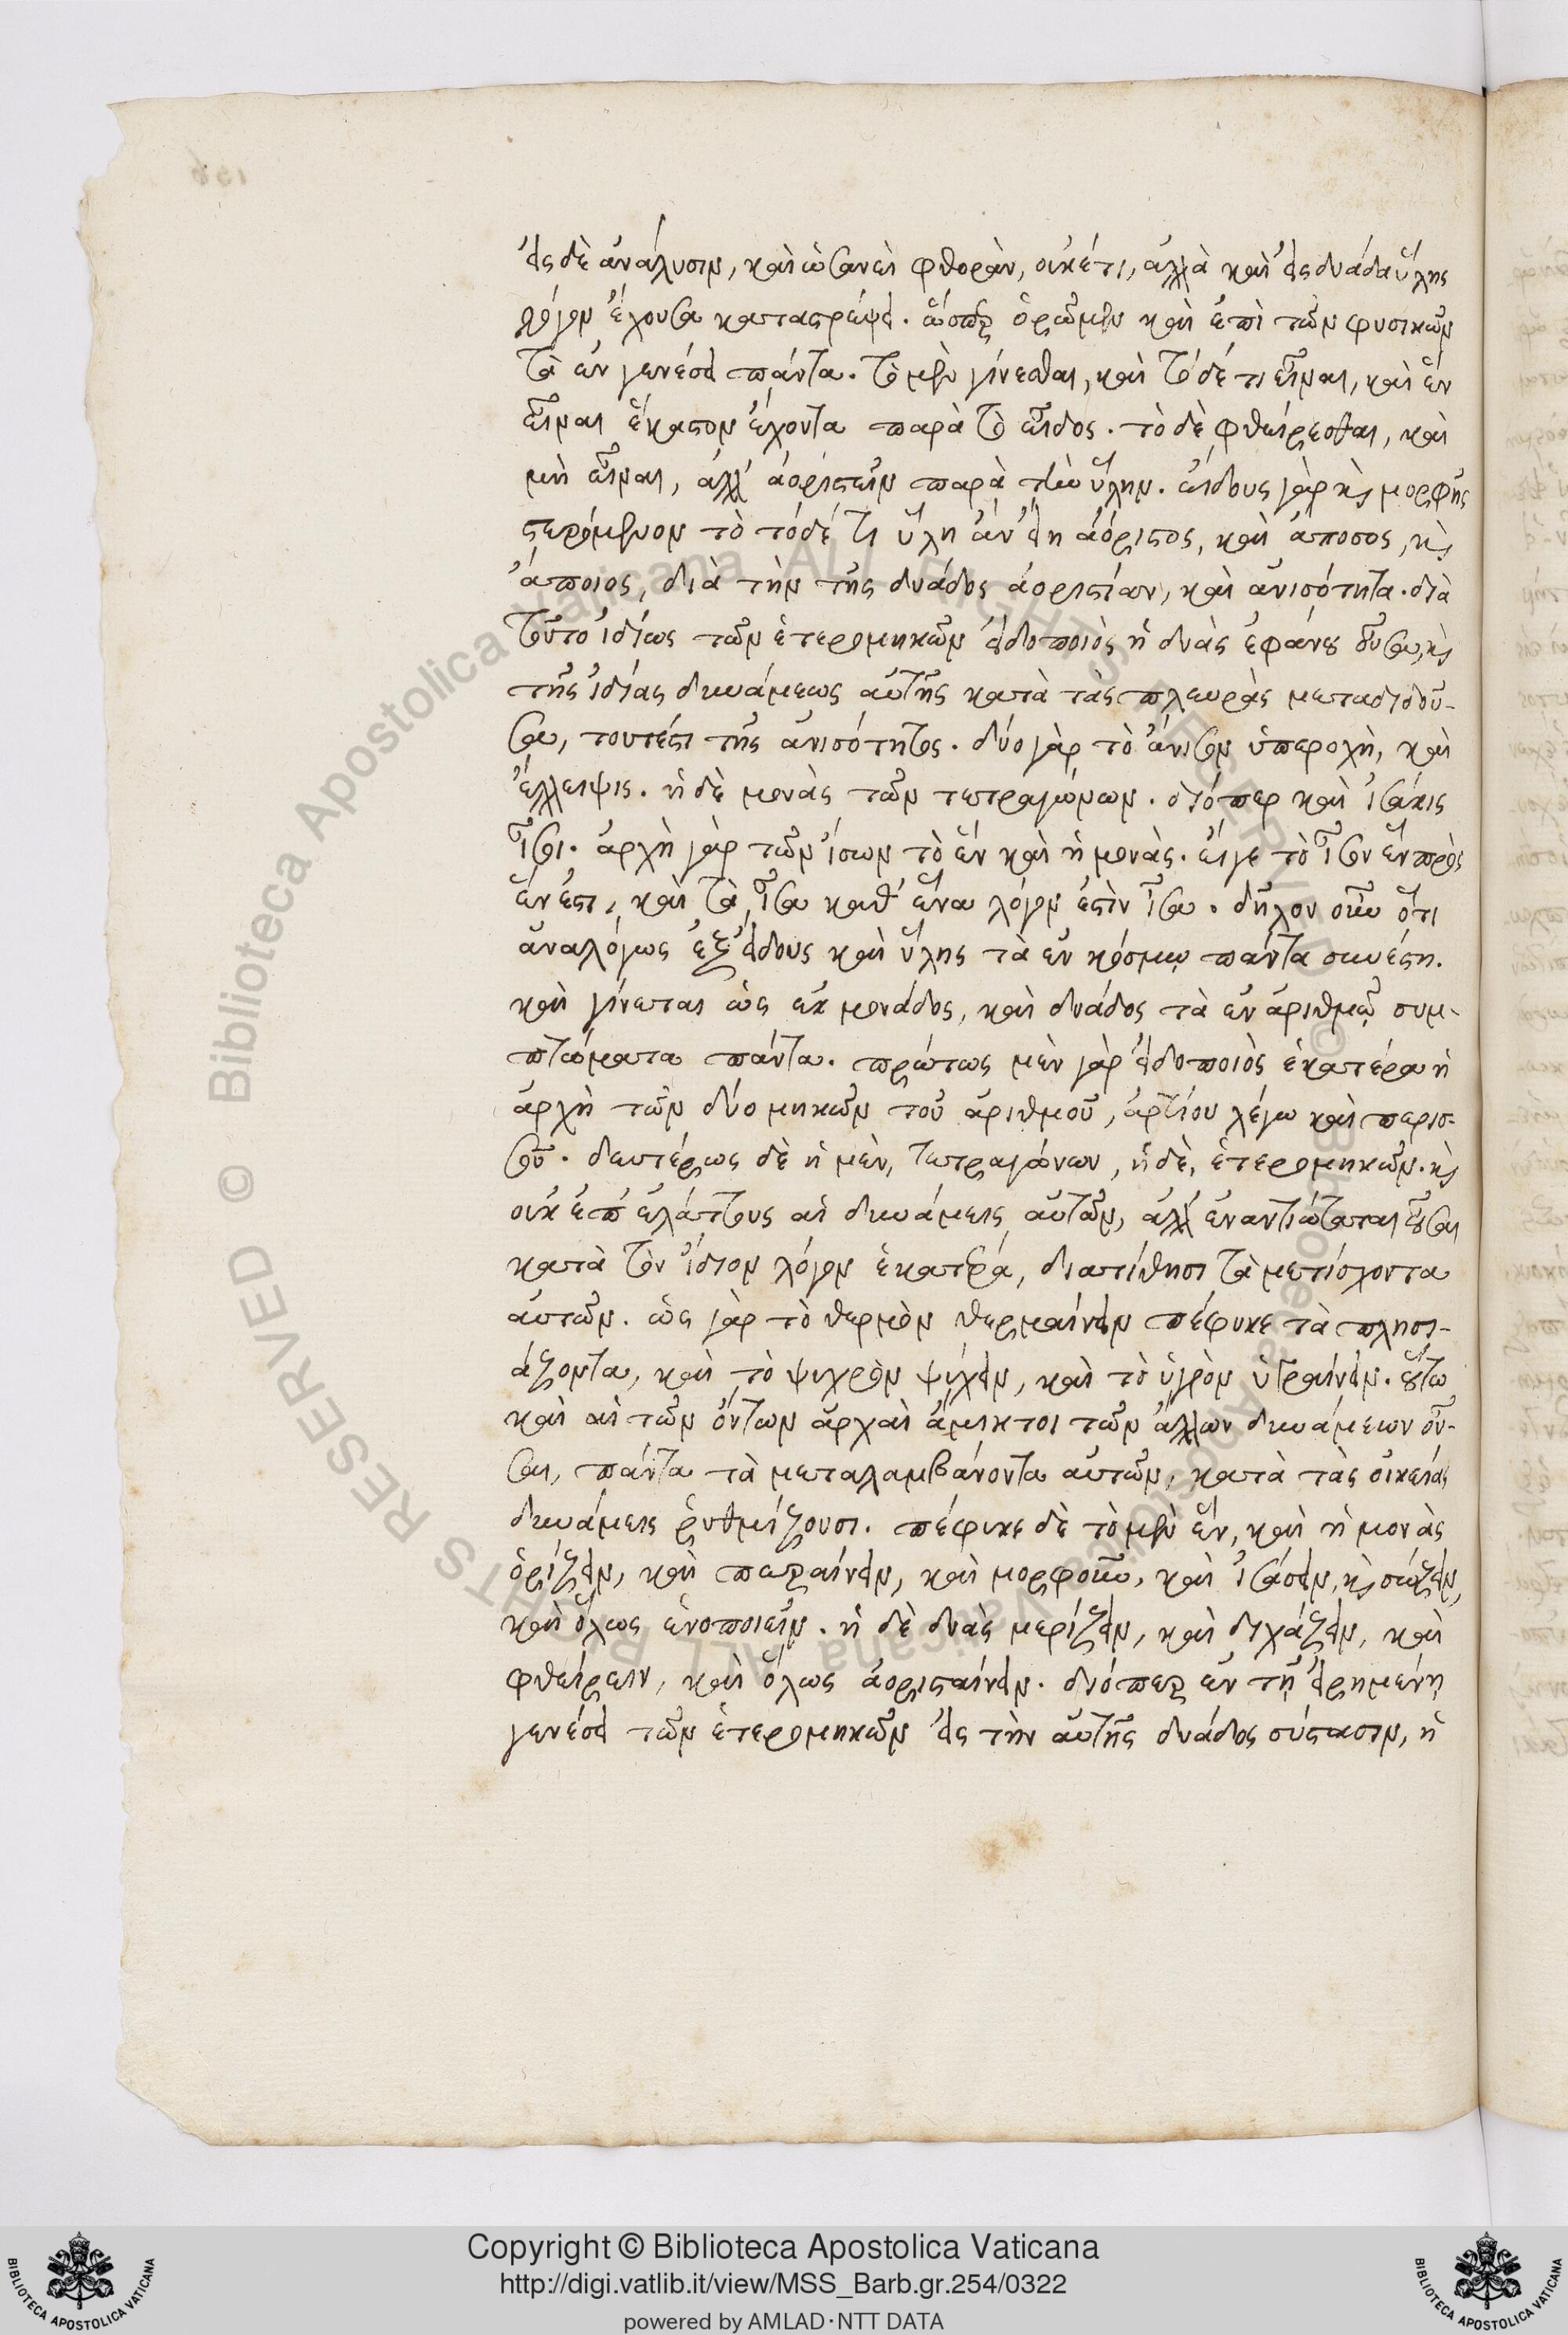 εἰς δὲ ἀνάλυσιν, καὶ ὡσανεὶ φθορὰν, οὐκέτι, ἀλλὰ καὶ εἰς δυάδα ὕλης
λόγον ἔχουσα καταστρέψει. ὥσπερ ὁρῶμεν καὶ ἐπὶ τῶν φυσικῶν
τὰ ἐν γενέσει πάντα. τὸ μὲν γίνεσθαι, καὶ τόδε τι εἶναι, καὶ ἓν
εἶναι ἕκαστον ἔχοντα παρὰ τὸ εἶδος. τὸ δὲ φθείρεσθαι, καὶ
μὴ εἶναι, ἀλλ' ἀοριστεῖν παρὰ τὴν ὕλην. εἴδους γὰρ καὶ μορφῆς
στερόμενον τὸ τόδέ τι ὕλη ἂν εἴη ἀόριστος, καὶ ἄποσος, καὶ
ἄποιος, διὰ τὴν τῆς δυάδος ἀοριστίαν, καὶ ἀνισότητα. διὰ
τοῦτο ἰδίως τῶν ἑτερομηκῶν εἰδοποιὸς ἡ δυὰς ἐφάνη οὖσα, καὶ
τῆς ἰδίας δυνάμεως αὐτῆς κατὰ τὰς πλευρὰς μεταδιδοῦ-
σα, τουτέστι τῆς ἀνισότητος. δύο γὰρ τὸ ἄνισον ὑπεροχὴ, καὶ
ἔλλειψις. ἡ δὲ μονὰς τῶν τετραγώνων. διόπερ καὶ ἰσάκις
ἶσοι. ἀρχὴ γὰρ τῶν ἴσων τὸ ἓν καὶ ἡ μονὰς. εἴγε τὸ ἶσον ἓν πρὸς
ἕν ἐστι, καὶ τὰ ἶσα καθ' ἕνα λόγον ἐστὶν ἶσα. δῆλον οὖν ὅτι
ἀναλόγως ἐξ εἴδους καὶ ὕλης τὰ ἐν κόσμῳ πάντα συνέστη.
καὶ γίνεται ὡς ἐκ μονάδος, καὶ δυάδος τὰ ἐν ἀριθμῷ συμ-
πτώματα πάντα. πρώτως μὲν γὰρ εἰδοποιὸς ἑκατέρα ἡ
ἀρχὴ τῶν δύο μηκῶν τοῦ ἀριθμοῦ, ἀρτίου λέγω καὶ περισ-
σοῦ. δευτέρως δὲ ἡ μὲν, τετραγώνων, ἡ δὲ, ἑτερομηκῶν. καὶ
οὐκ ἐπ' ἐλάττους αἱ δυνάμεις αὐτῶν, ἀλλ' ἐναντιώταται οὖσαι
κατὰ τὸν ἴδιον λόγον ἑκατέρα, διατίθησι τὰ μετίσχοντα
αὐτῶν. ὡς γὰρ τὸ θερμὸν θερμαίνειν πέφυκε τὰ πλησι-
άζοντα, καὶ τὸ ψυχρὸν ψύχειν, καὶ τὸ ὑγρὸν ὑγραίνειν. οὕτω
καὶ αἱ τῶν ὄντων ἀρχαὶ ἄμικτοι τῶν ἄλλων δυνάμεων οὖ-
σαι, πάντα τὰ μεταλαμβάνοντα αὐτῶν, κατὰ τὰς οἰκείας
δυνάμεις ῥυθμίζουσι. πέφυκε δὲ τὸ μὲν ἓν, καὶ ἡ μονὰς
ὁρίζειν, καὶ περαίνειν, καὶ μορφοῦν, καὶ ἰσάσειν, καὶ σώζειν,
καὶ ὅλως ἑνοποιεῖν. ἡ δὲ δυὰς μερίζειν, καὶ διχάζειν, καὶ
φθείρειν, καὶ ὅλως ἀορισταίνειν. διόπερ ἐν τῇ εἰρημένῃ
γενέσει τῶν ἑτερομηκῶν εἰς τὴν αὐτῆς δυάδος σύστασιν, ἡ
Biblioteca Apostolica Vaticana ALL RIGHTS RESERVED © Biblioteca Apostolica Vaticana ALL RIGHTS RESERVED ©
Copyright © Biblioteca Apostolica Vaticana
http://digi.vatlib.it/view/MSS_Barb.gr.254/0322
powered by AMLAD·NTT DATA
BIBLIOTECA APOSTOLICA VATICANA
BIBLIOTECA APOSTOLICA VATICANA